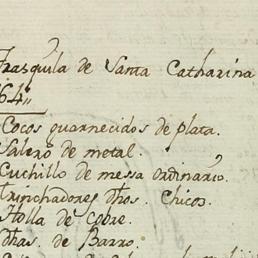 Frasquila de Santa Catharina
64"
Cocos guarnecidos de plata.
Salero de metal.
Cuchillo de messa ordinario.
Trinchadores dhos. Chicos.
Holla de cobre.
dhas. de Barro.